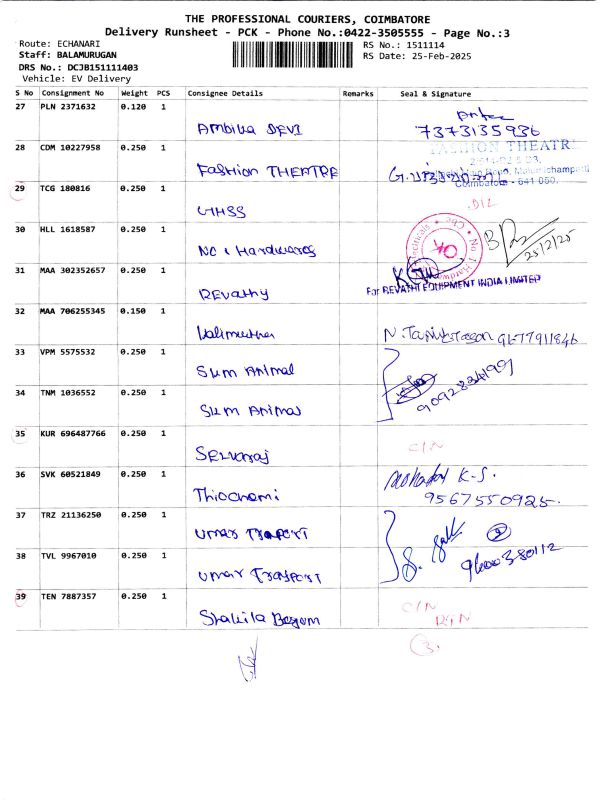 THE PROFESSIONAL COURIERS, COIMBATORE
Delivery Runsheet - PCK - Phone No.:0422-3505555 - Page No.:3
Route: ECHANARI
RS No.: 1511114
Staff: BALAMURUGAN
RS Date: 25-Feb-2025
DRS No.: DCJB151111403
Vehicle: EV Delivery
S No Consignment No Weight PCS Consignee Details Remarks Seal & Signature
27 PLN 2371632 0.120 1
Ambika DEVI 7373135936
28 CDM 10227958 0.250 1
FASHION THEATRE
Fashion THEATRE
Coimbatore - 641 050.
29 TCG 180816 0.250 1
GHSS D/L
30 HLL 1618587 0.250 1
NO 1 Hardwares 25/2/25
31 MAA 302352657 0.250 1
Revathy For REVATHI EQUIPMENT INDIA LIMITED
32 MAA 706255345 0.150 1
33 VPM 5575532 0.250 1
SKM Animal
34 TNM 1036552 0.250 1
SKM Animal
35 KUR 696487766 0.250 1
Selvaraj C/N
36 SVK 60521849 0.250 1
K.S.
9567550925.
37 TRZ 21136250 0.250 1
38 TVL 9967010 0.250 1
39 TEN 7887357 0.250 1
Shakila Begam C/N
3.